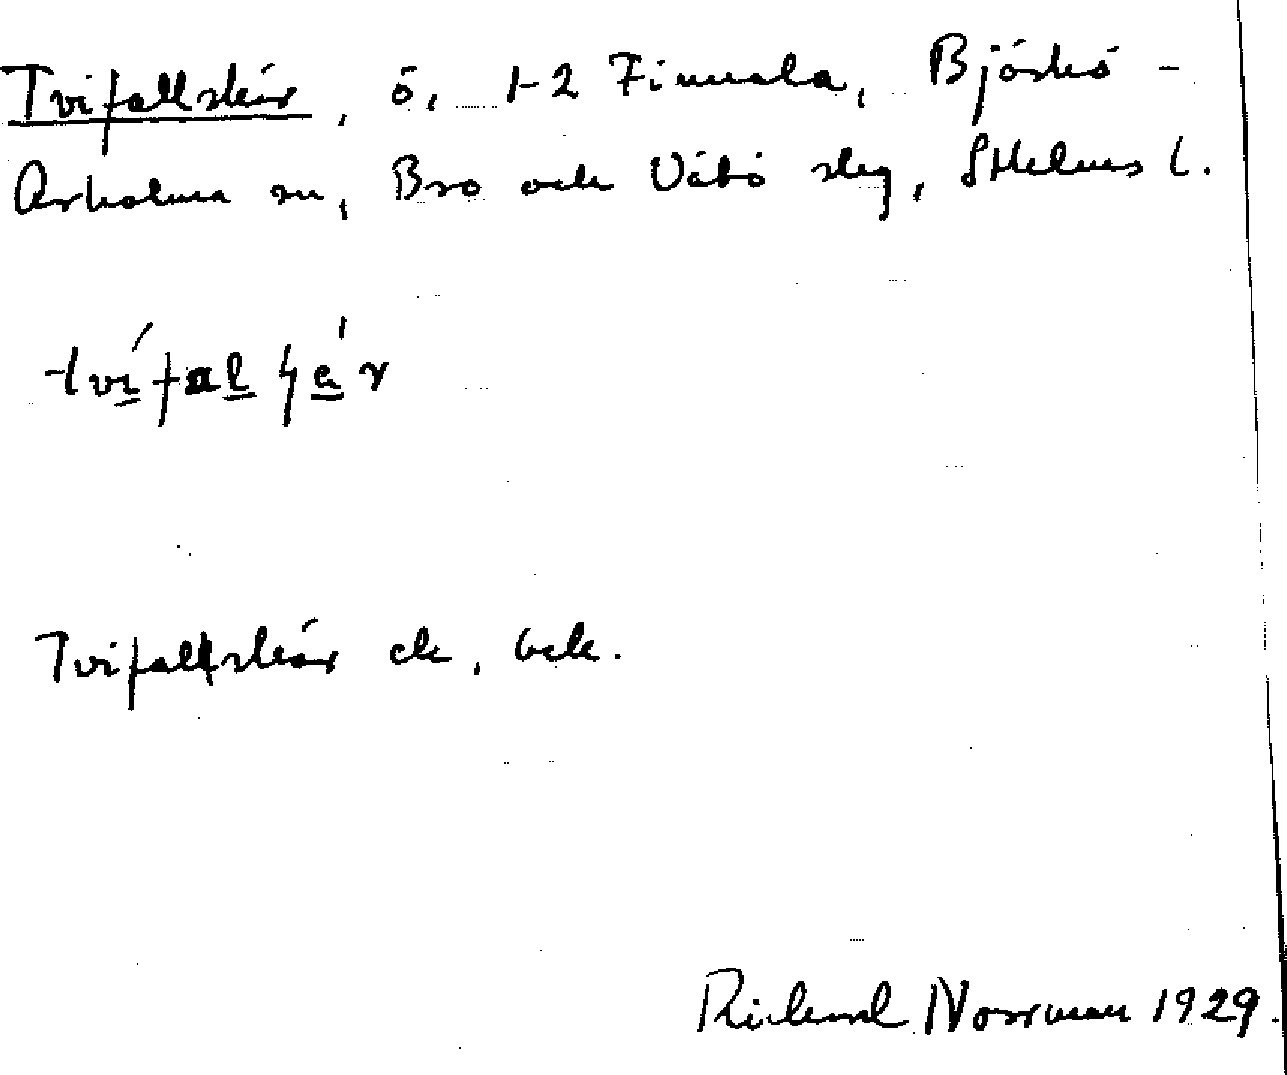 Tvifallskär, ö, 1-2 Finnala, Björkö-
Arholma sn, Bro och Vätö skg, Sthlms l.
Tvifallskär ek,
Rickard Norrman 1929.